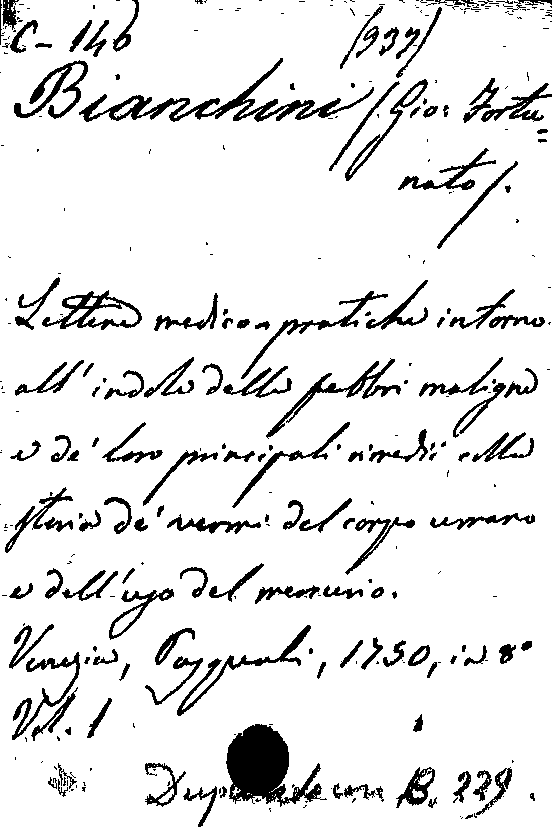 C - 146 (937)
Bianchini / Gio: Fortu=
nato /.
Lettere medico-pratiche intorno
all' indole delle febbri maligne
e de' loro principali rimedii colla
storia de' vermi del corpo umano
e dell' uso del mercurio.
Venezia, Pasquali, 1750, in 8º
Vol. 1
con B. 229.